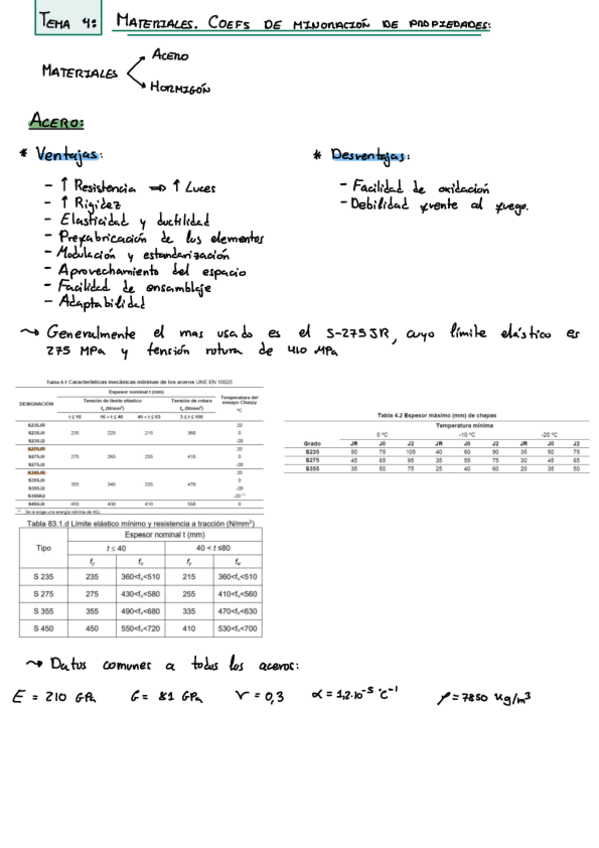 TEMA 4: MATERIALES. COEFS DE MINORACIÓN DE PROPIEDADES:
MATERIALES
ACERO
HORMIGÓN
ACERO:
* Ventajas:
- ↑ Resistencia ⇒ ↑ Luces
- ↑ Rigidez
- Elasticidad y ductilidad
- Prefabricación de los elementos
- Modulación y estandarización
- Aprovechamiento del espacio
- Facilidad de ensamblaje
- Adaptabilidad
* Desventajas:
- Facilidad de oxidación
- Debilidad frente al fuego.
Generalmente el mas usado es el S-275JR, cuyo límite elástico es
275 MPa y tensión rotura de 410 MPa
Tabla 4.1 Características mecánicas mínimas de los aceros UNE EN 10025
DESIGNACIÓN
Espesor nominal t (mm)
Temperatura del
ensayo Charpy
ºC
Tensión de límite elástico
fy (N/mm²)
Tensión de rotura
fu (N/mm²)
t ≤ 16 16 < t ≤ 40 40 < t ≤ 63 3 ≤ t ≤ 100
S235JR 20
S235J0 235 225 215 360 0
S235J2 -20
S275JR 20
S275J0 275 265 255 410 0
S275J2 -20
S355JR 20
S355J0 355 345 335 470 0
S355J2 -20
S355K2 -20
S450J0 450 430 410 550 0
Se le exige una energía mínima de 40J.
Tabla 4.2 Espesor máximo (mm) de chapas
Temperatura mínima
0 ºC -10 ºC -20 ºC
Grado JR J0 J2 JR J0 J2 JR J0 J2
S235 50 75 105 40 60 90 35 50 75
S275 45 65 95 35 55 75 30 45 65
S355 35 50 75 25 40 60 20 35 50
Tabla 83.1.d Límite elástico mínimo y resistencia a tracción (N/mm²)
Tipo
Espesor nominal t (mm)
t ≤ 40 40 < t ≤80
fy fu fy fu
S 235 235 360<fu<510 215 360<fu<510
S 275 275 430<fu<580 255 410<fu<560
S 355 355 490<fu<680 335 470<fu<630
S 450 450 550<fu<720 410 530<fu<700
Datos comunes a todos los aceros:
E = 210 GPa G = 81 GPa ν = 0,3 α = 1,2·10⁻⁵ °C⁻¹ ρ = 7850 kg/m³